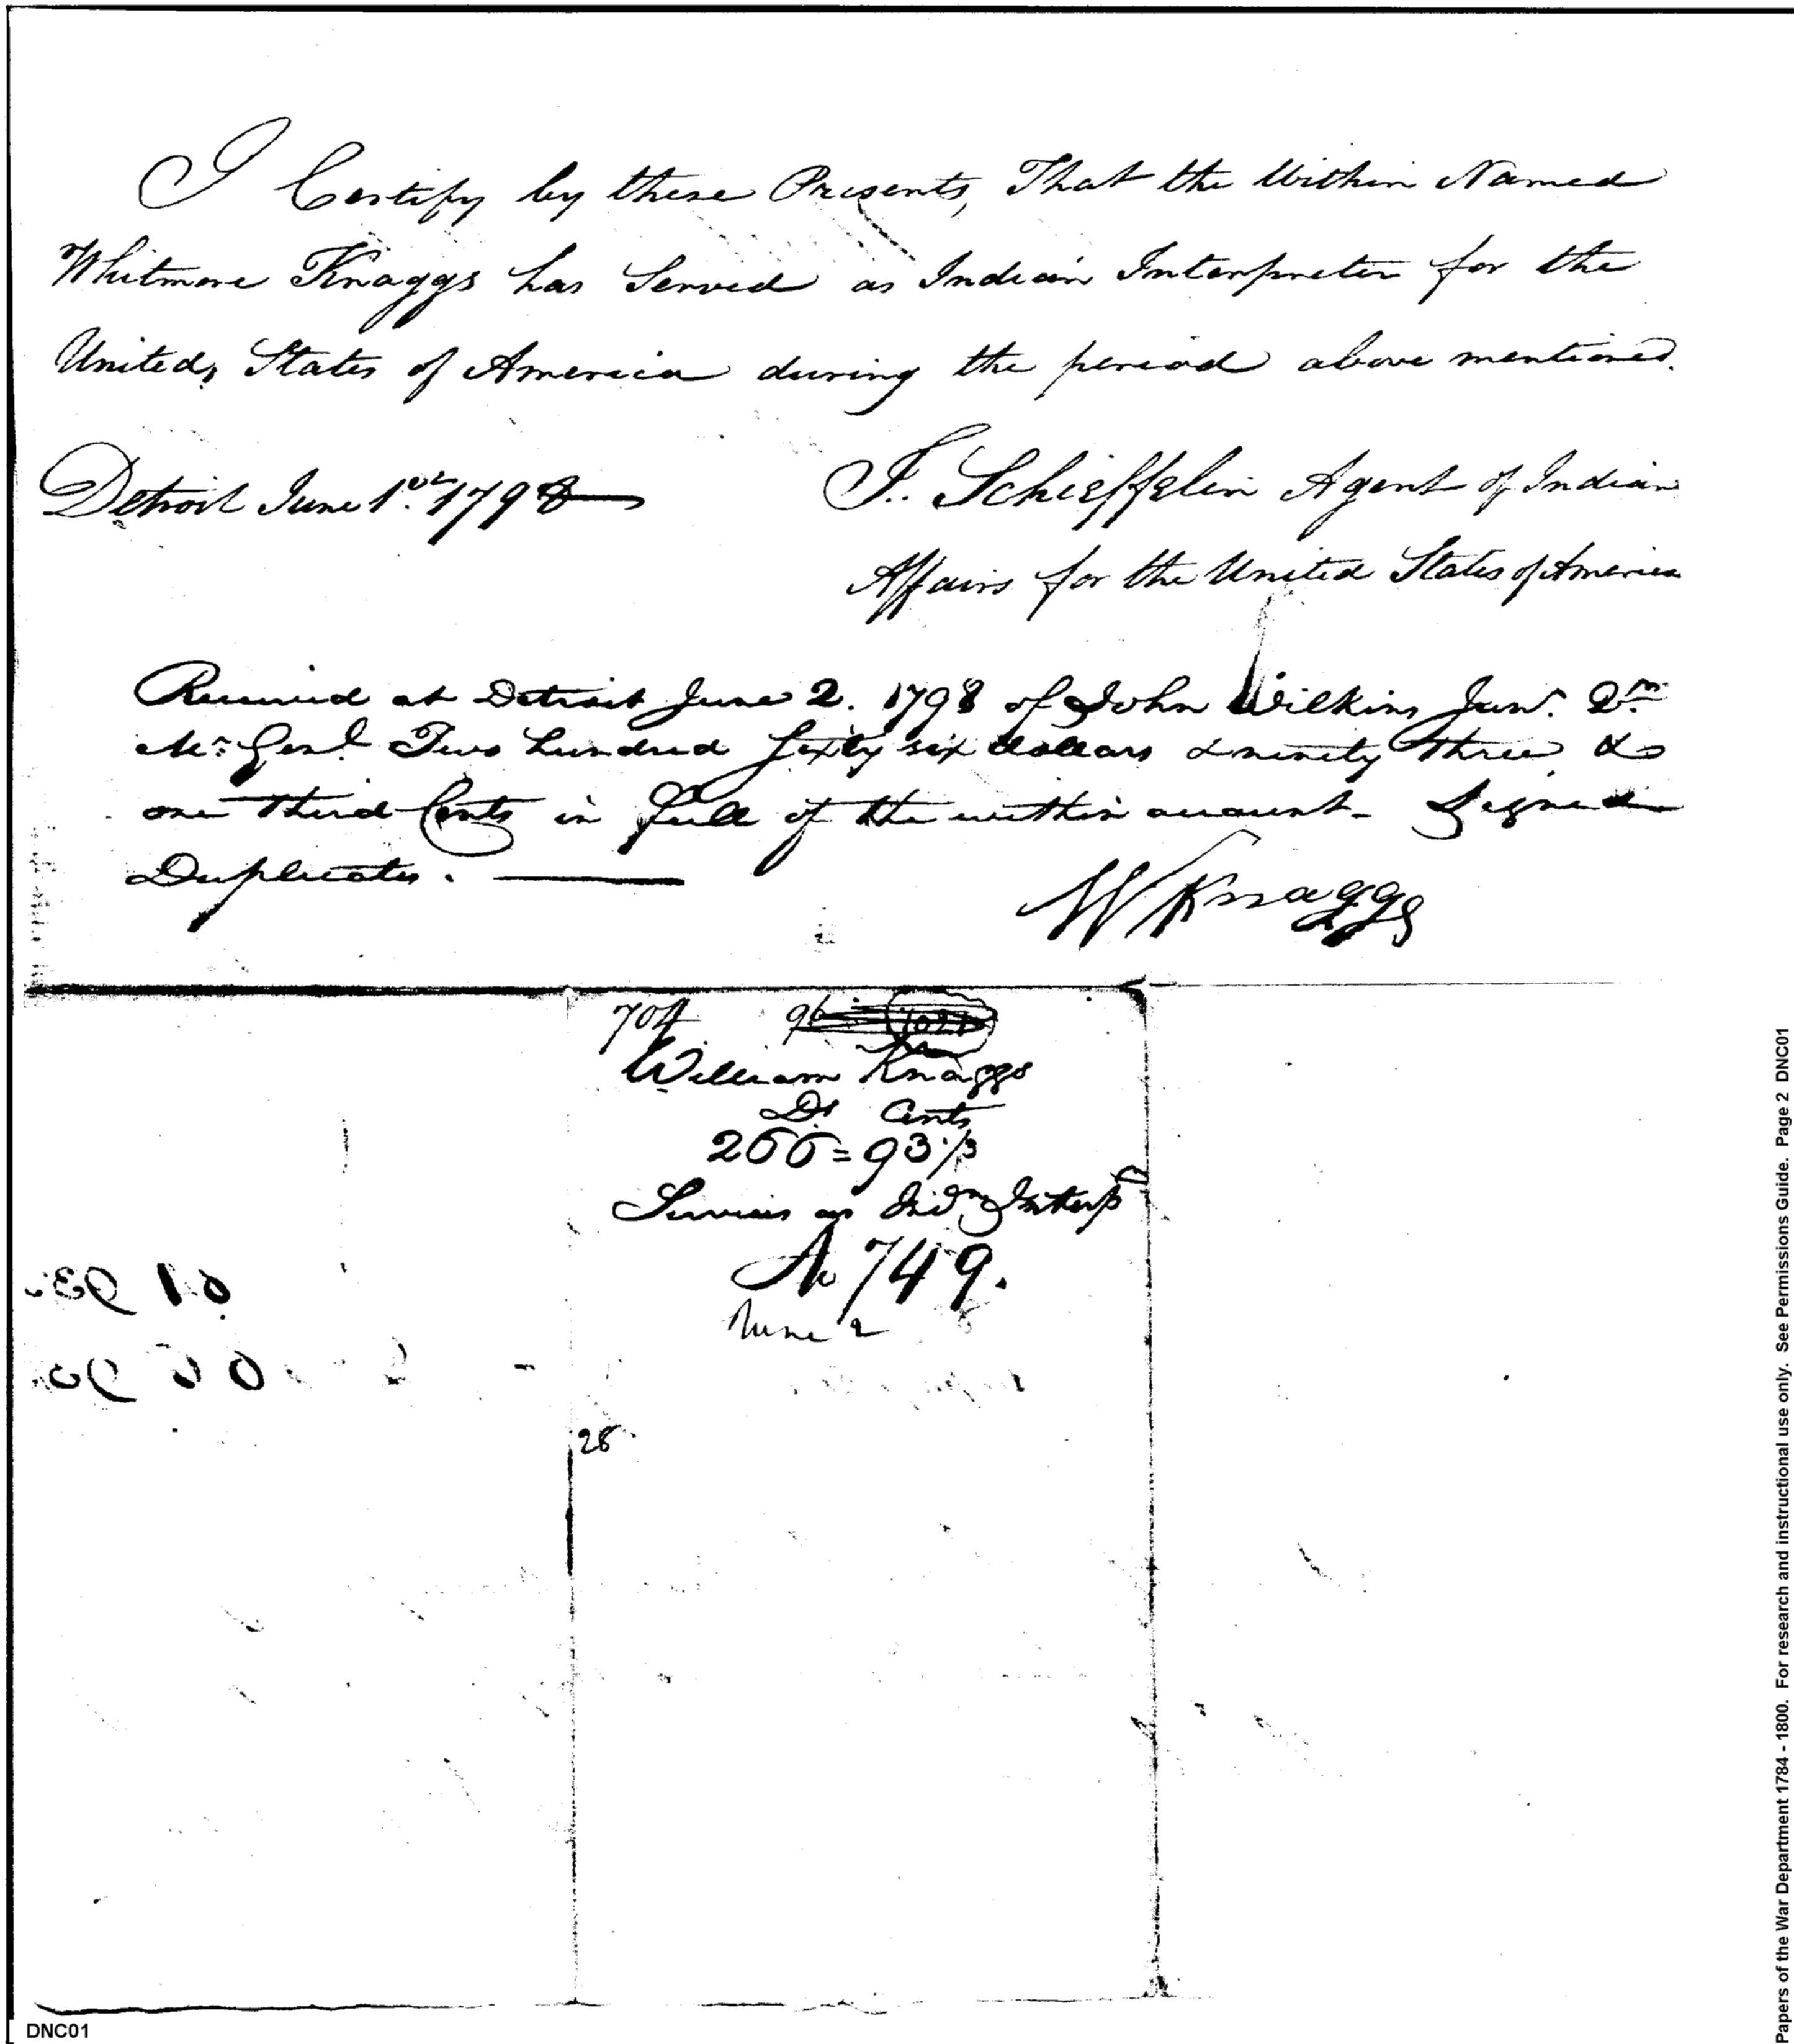 I Certify by these Presents, That the Within Named
Whitmore Knaggs has Served as Indian Interpreter for the
United, States of America during the period above mentioned.
Detroit June 1st. 1798
J. Schieffelin Agent of Indian
Affairs for the United States of America
Received at Detroit June 2. 1798 of John Wilkins Junr. Qr.
Mr. Genl. Two hundred sixty six dollars & ninety three &
one third Cents in full of the within account - Signed
Duplicates.
W Knaggs
704 96
William Knaggs
Ds Cents
266=93 1/3
Services as Indn Interpr
No 749.
June 2
28
DNC01
Papers of the War Department 1784 - 1800. For research and instructional use only. See Permissions Guide. Page 2 DNC01